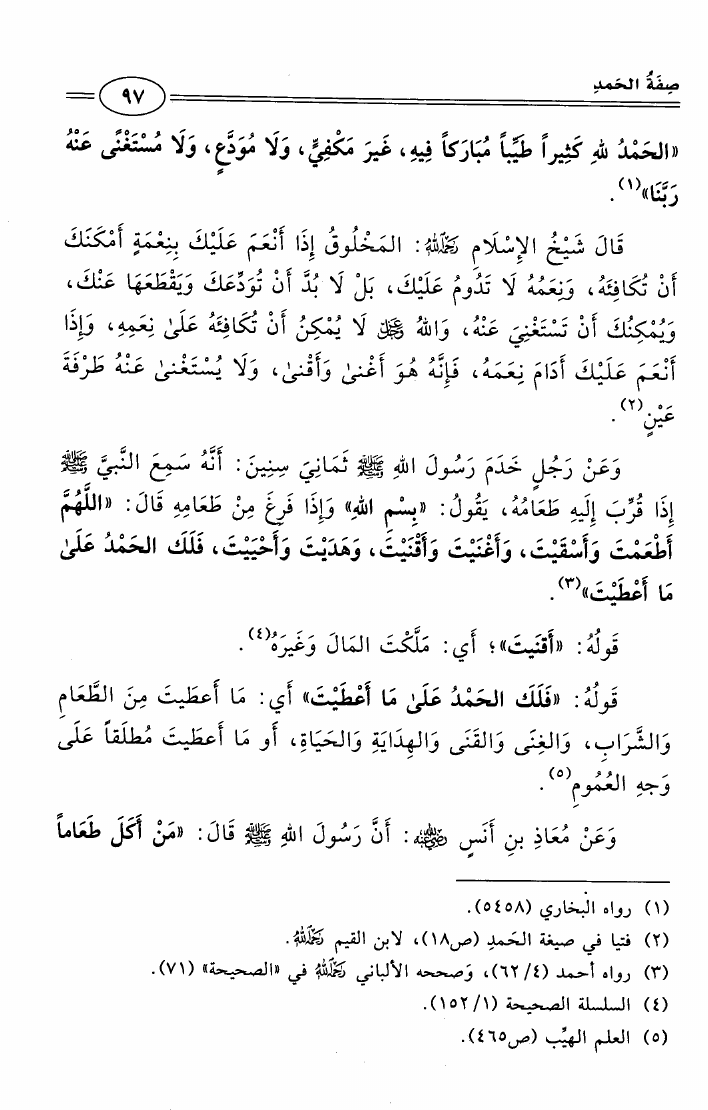 صِفَةُ الحَمدِ
٩٧
«الحَمْدُ للهِ كَثِيراً طَيِّباً مُبَارَكاً فِيهِ، غَيرَ مَكْفِيٍّ، وَلَا مُوَدَّعٍ، وَلَا مُسْتَغْنًى عَنْهُ
رَبَّنَا»(١).
قَالَ شَيْخُ الإِسْلَامِ رَحِمَهُ اللهُ: المَخْلُوقُ إِذَا أَنْعَمَ عَلَيْكَ بِنِعْمَةٍ أَمْكَنَكَ
أَنْ تُكَافِئَهُ، وَنِعَمُهُ لَا تَدُومُ عَلَيْكَ، بَلْ لَا بُدَّ أَنْ تُوَدِّعَكَ وَيَقْطَعَهَا عَنْكَ،
وَيُمْكِنُكَ أَنْ تَسْتَغْنِيَ عَنْهُ، وَاللهُ ﷻ لَا يُمْكِنُ أَنْ تُكَافِئَهُ عَلَىٰ نِعَمِهِ، وَإِذَا
أَنْعَمَ عَلَيْكَ أَدَامَ نِعَمَهُ، فَإِنَّهُ هُوَ أَغْنىٰ وَأَقْنىٰ، وَلَا يُسْتَغْنىٰ عَنْهُ طَرْفَةَ
عَيْنٍ(٢).
وَعَنْ رَجُلٍ خَدَمَ رَسُولَ اللهِ ﷺ ثَمَانِيَ سِنِينَ: أَنَّهُ سَمِعَ النَّبِيَّ ﷺ
إِذَا قُرِّبَ إِلَيهِ طَعَامُهُ، يَقُولُ: «بِسْمِ اللهِ» وَإِذَا فَرِغَ مِنْ طَعَامِهِ قَالَ: «اللَّهُمَّ
أَطْعَمْتَ وَأَسْقَيْتَ، وَأَغْنَيْتَ وَأَقْنَيْتَ، وَهَدَيْتَ وَأَحْيَيْتَ، فَلَكَ الحَمْدُ عَلَىٰ
مَا أَعْطَيْتَ»(٣).
قَولُهُ: «أَقنَيتَ»؛ أَي: مَلَّكْتَ المَالَ وَغَيرَهُ(٤).
قَولُهُ: «فَلَكَ الحَمْدُ عَلَىٰ مَا أَعْطَيْتَ» أَي: مَا أَعطَيتَ مِنَ الطَّعَامِ
وَالشَّرَابِ، وَالغِنَى وَالقَنَى وَالهِدَايَةِ وَالحَيَاةِ، أَو مَا أَعطَيتَ مُطلَقاً عَلَى
وَجهِ العُمُومِ(٥).
وَعَنْ مُعَاذِ بنِ أَنَسٍ رَضِيَ اللهُ عَنْهُ: أَنَّ رَسُولَ اللهِ ﷺ قَالَ: «مَنْ أَكَلَ طَعَاماً
(١) رواه البخاري (٥٤٥٨).
(٢) فتيا في صيغة الحَمدِ (ص١٨)، لابن القيم رَحِمَهُ اللهُ.
(٣) رواه أحمد (٦٢/٤)، وَصححه الألباني رَحِمَهُ اللهُ في «الصحيحة» (٧١).
(٤) السلسلة الصحيحة (١٥٢/١).
(٥) العلم الهيِّب (ص٤٦٥).